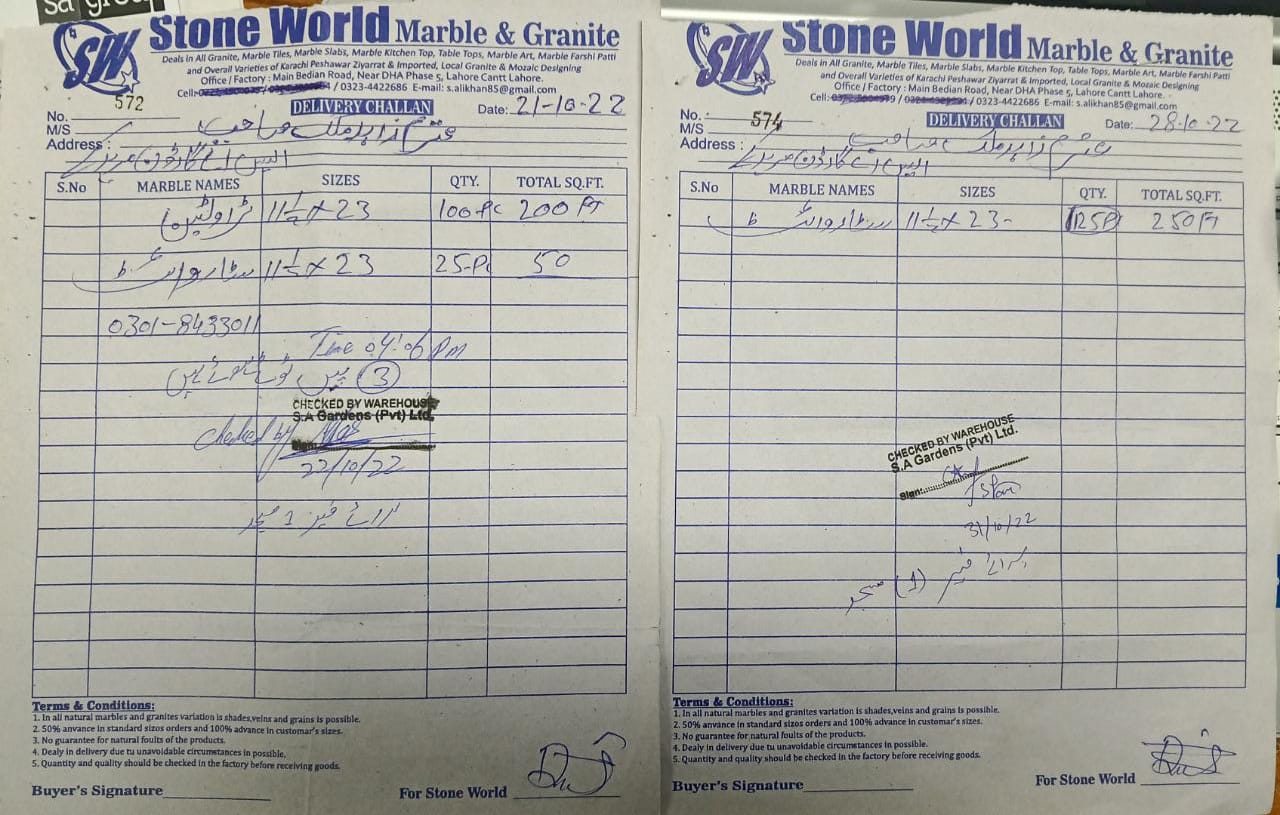 sa group
SW
Stone World Marble & Granite
Deals in All Granite, Marble Tiles, Marble Slabs, Marble Kitchen Top, Table Tops, Marble Art, Marble Farshi Patti
and Overall Varieties of Karachi Peshawar Ziyarrat & Imported, Local Granite & Mozaic Designing
Office / Factory : Main Bedian Road, Near DHA Phase 5, Lahore Cantt Lahore.
Cell: / 0323-4422686 E-mail: s.alikhan85@gmail.com
No. 572
DELIVERY CHALLAN
Date: 21-10-22
M/S محترم زاہد ملک صاحب
Address : ایس اے گارڈن
S.No MARBLE NAMES SIZES QTY. TOTAL SQ.FT.
11½ x 23 100-Pc 200 FT
سٹار وائٹ 11½ x 23 25-Pc 50
0301-8433011
Time 04:06 Pm
3 پیس ٹوٹے ہوئے ہیں
CHECKED BY WAREHOUSE
S.A Gardens (Pvt) Ltd.
Sign:
Checked by
22/10/22
برائے فیز 1 مسجد
Terms & Conditions:
1. In all natural marbles and granites variation is shades,veins and grains is possible.
2. 50% anvance in standard sizos orders and 100% advance in customar's sizes.
3. No guarantee for natural foults of the products.
4. Dealy in delivery due tu unavoidable circumstances in possible.
5. Quantity and quality should be checked in the factory before receiving goods.
Buyer's Signature
For Stone World
SW
Stone World Marble & Granite
Deals in All Granite, Marble Tiles, Marble Slabs, Marble Kitchen Top, Table Tops, Marble Art, Marble Farshi Patti
and Overall Varieties of Karachi Peshawar Ziyarrat & Imported, Local Granite & Mozaic Designing
Office / Factory : Main Bedian Road, Near DHA Phase 5, Lahore Cantt Lahore.
Cell: / 0323-4422686 E-mail: s.alikhan85@gmail.com
No. : 574
DELIVERY CHALLAN
Date: 28-10-22
M/S محترم زاہد ملک صاحب
Address : ایس اے گارڈن
S.No MARBLE NAMES SIZES QTY. TOTAL SQ.FT.
سٹار وائٹ 11½ x 23 125P 250 Ft
CHECKED BY WAREHOUSE
S.A Gardens (Pvt) Ltd.
Sign:
31/10/22
برائے فیز (1) مسجد
Terms & Conditions:
1. In all natural marbles and granites variation is shades,veins and grains is possible.
2. 50% anvance in standard sizos orders and 100% advance in customar's sizes.
3. No guarantee for natural foults of the products.
4. Dealy in delivery due tu unavoidable circumstances in possible.
5. Quantity and quality should be checked in the factory before receiving goods.
Buyer's Signature
For Stone World